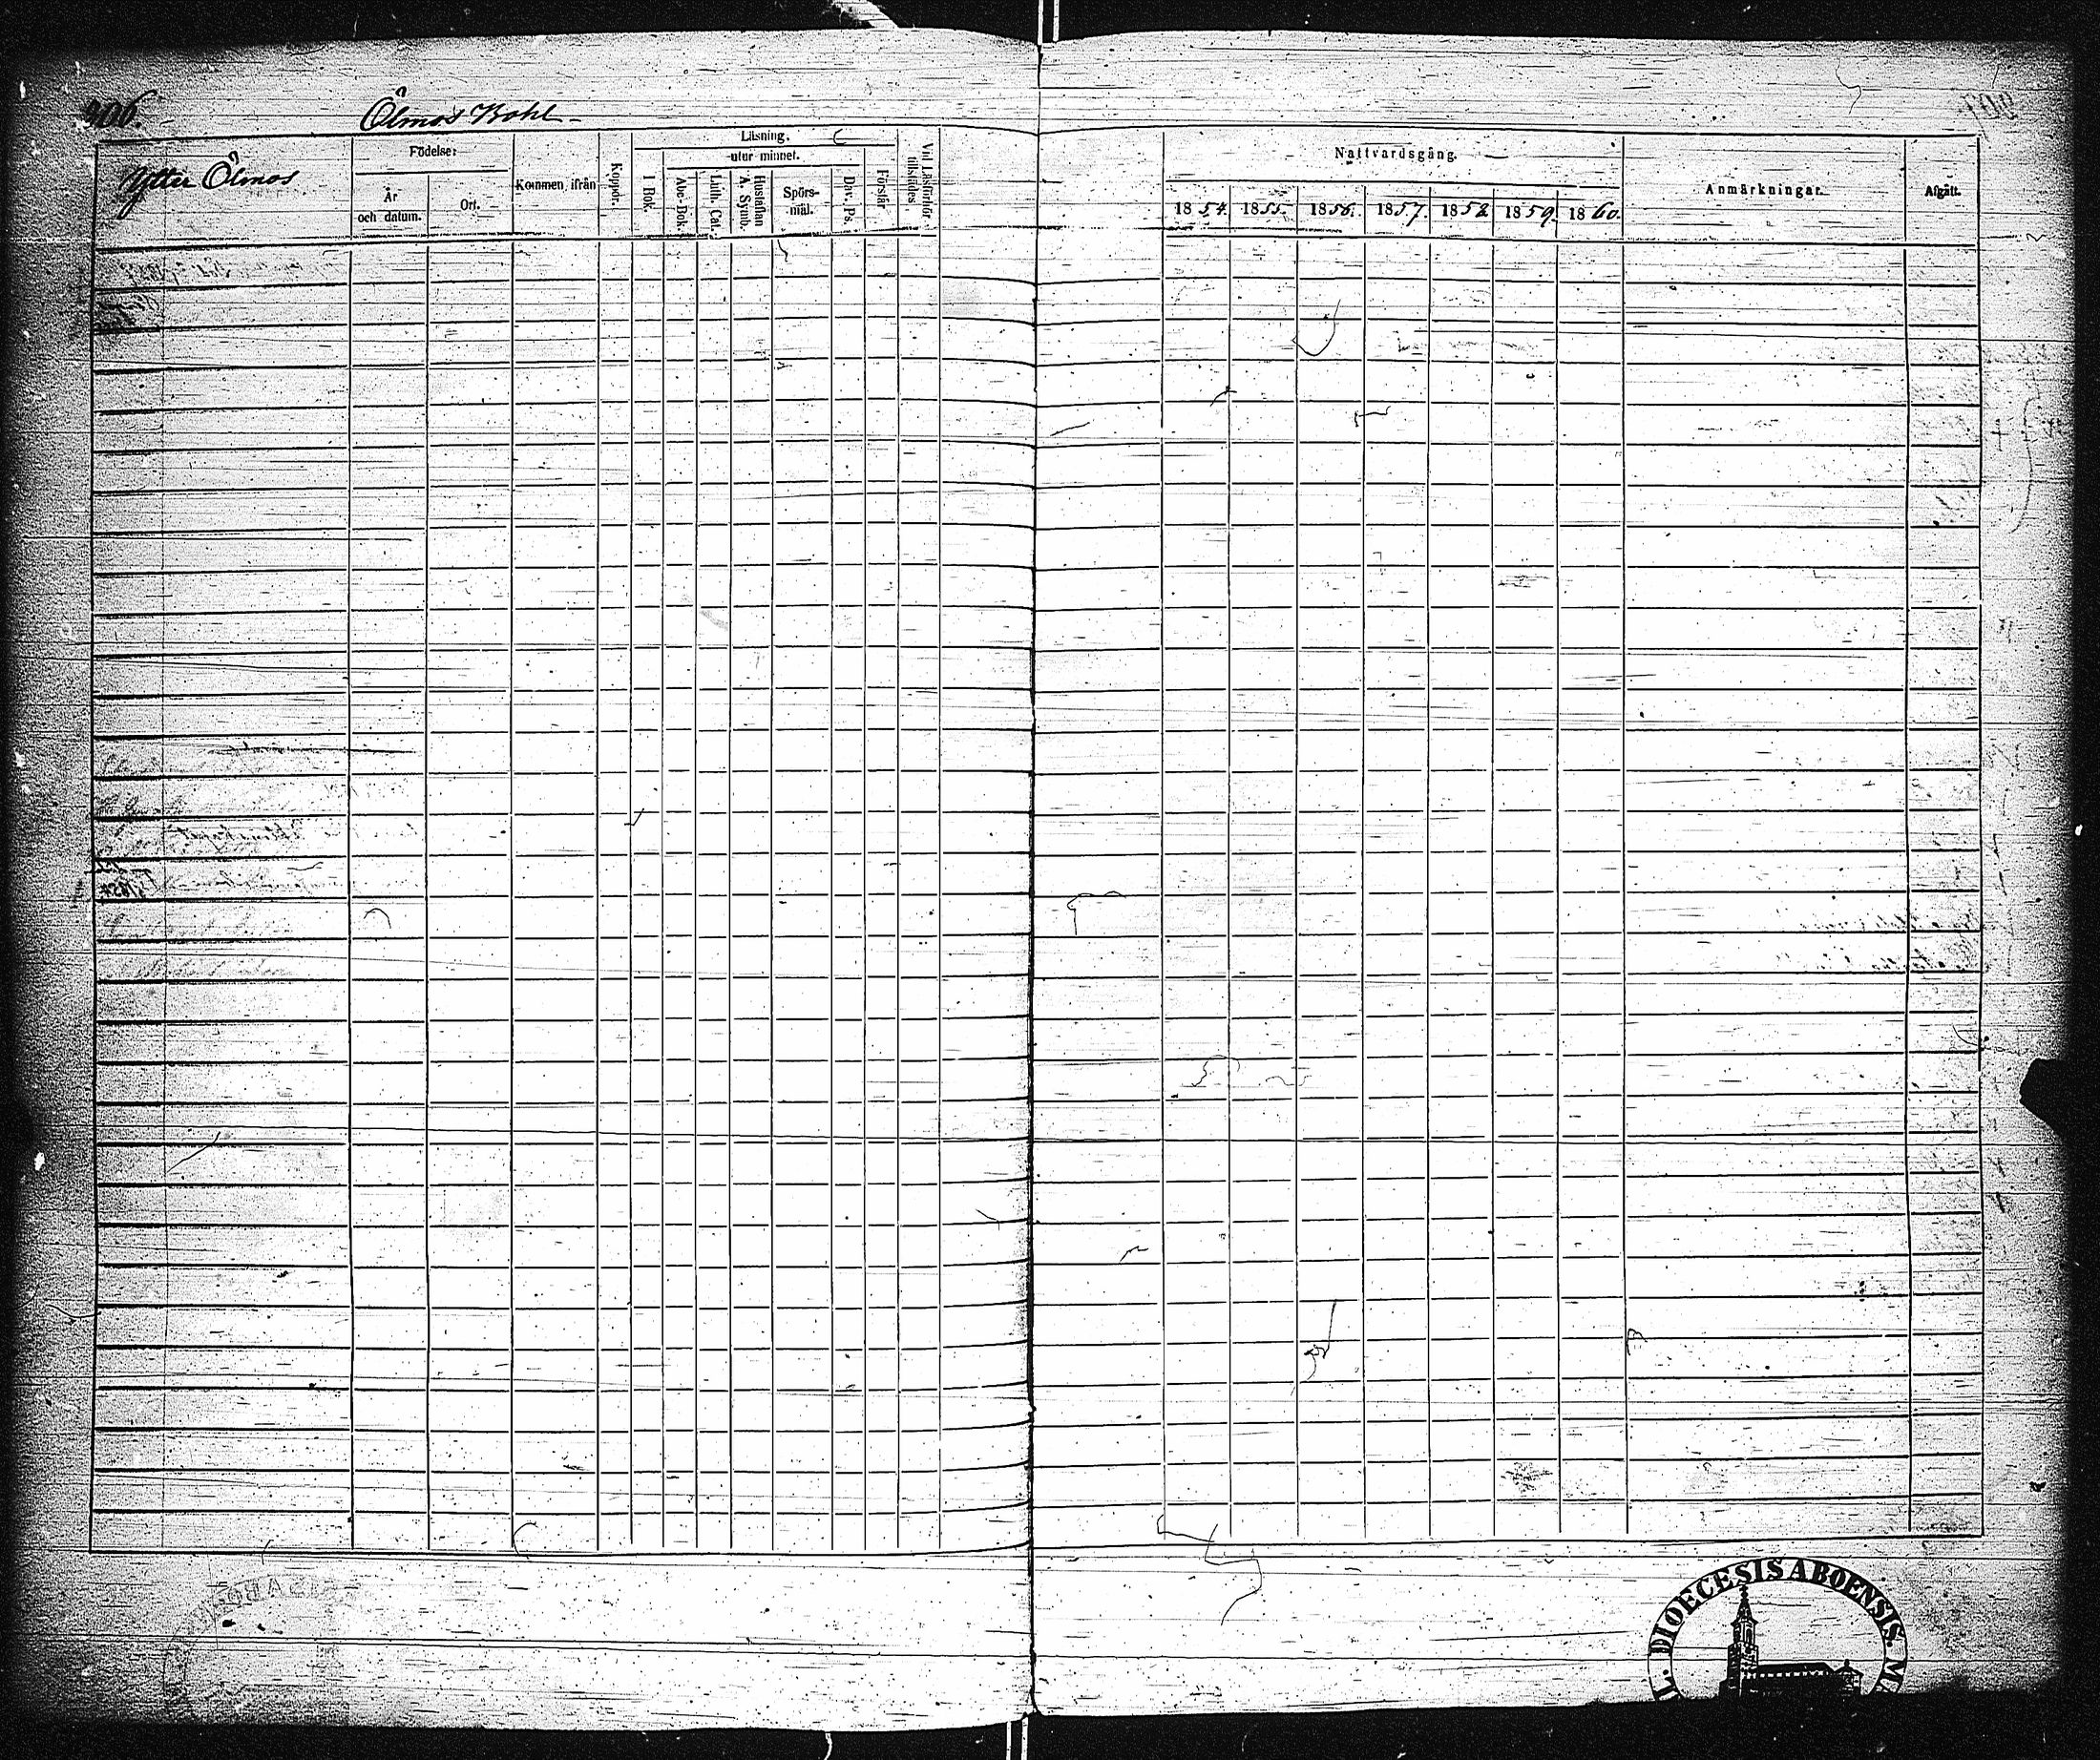 206.
Ölmos Bohl
Ytter Ölmos
Födelse:
År
och datum.
Ort.
Kommen ifrån
Koppor.
Läsning.
utur minnet.
I Bok.
Abc-Bok.
Luth. Cat.
Hustaflan
A. Symb.
Spörs-
mål.
Dav. Ps.
Förstår
Vid Läsförhör
tillstädes
Nattvardsgång.
1854.
1855.
1856.
1857.
1858
1859.
1860.
Anmärkningar.
Afgått.
DIOECESIS ABOENSIS.